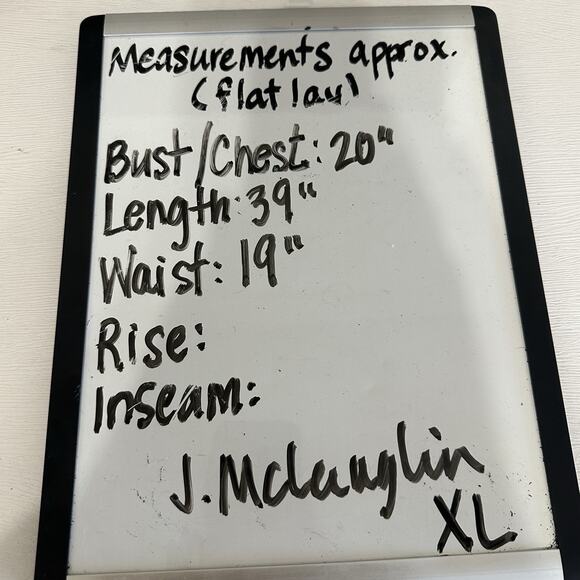 Measurements approx.
(flat lay)
Bust/Chest: 20"
Length: 39"
Waist: 19"
Rise:
Inseam:
J. Mclaughlin
XL